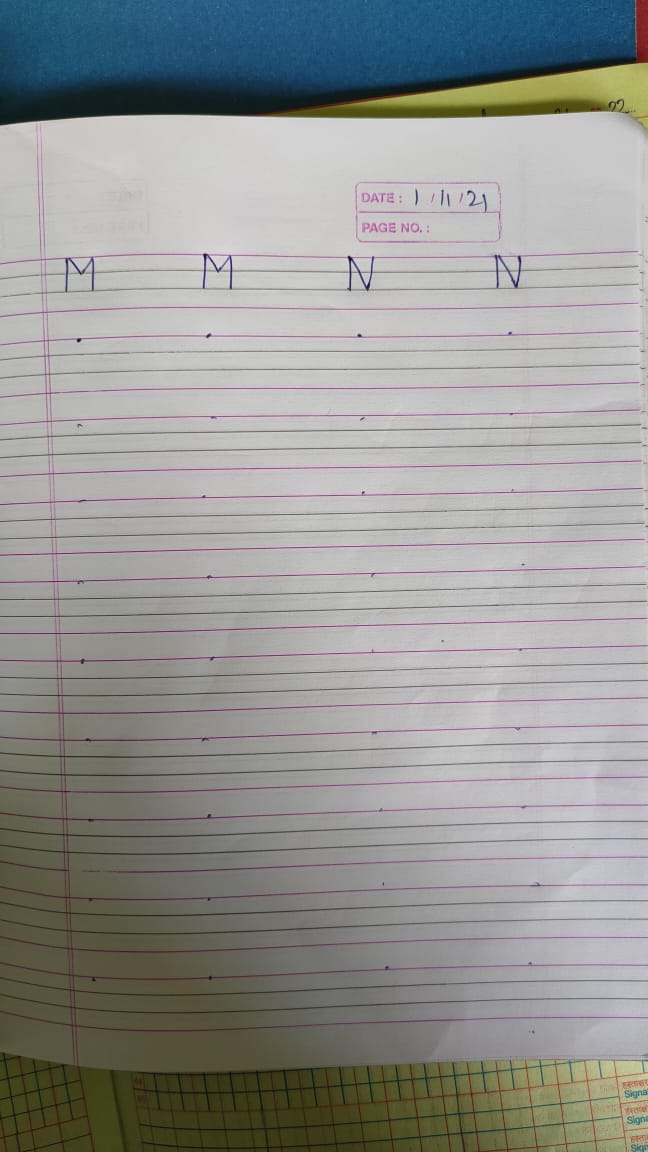 22
DATE : 1/11/21
PAGE NO. :
M M N N
हस्ताक्षर
Signa
हस्ताक्षर
Signa
हस्ताक्षर
Sign